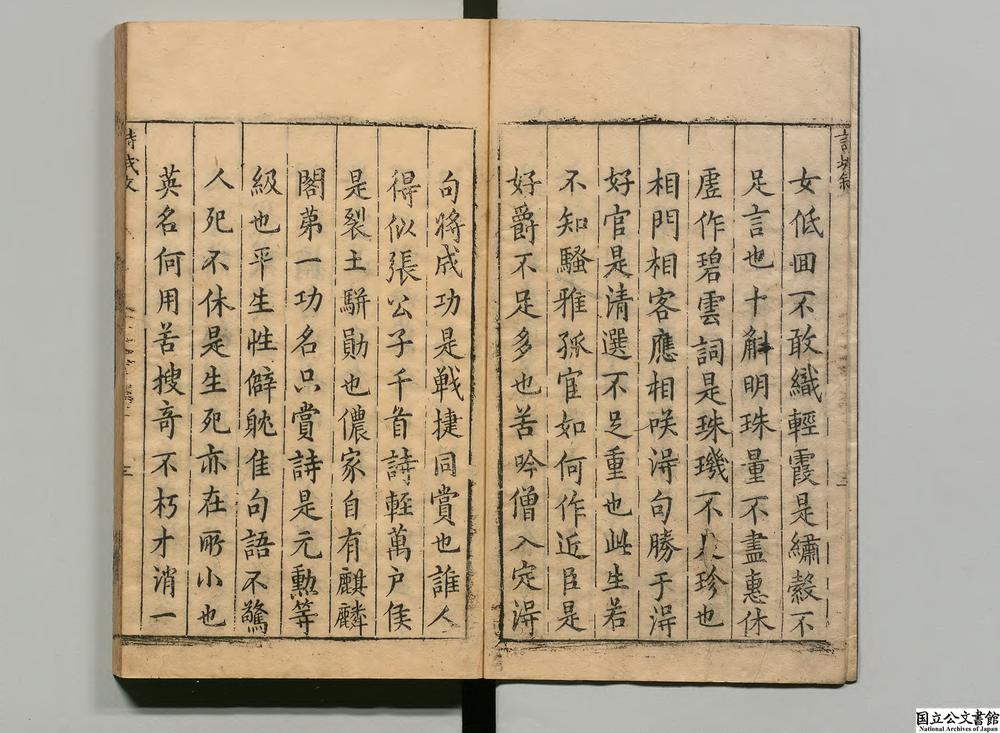 女低回不敢織輕霞是繡縠不
足言也十斛明珠量不盡惠休
虛作碧雲詞是珠璣不足珍也
相門相客應相咲淂句勝于淂
好官是清選不足重也此生若
不知騷雅孤宦如何作近臣是
好爵不足多也苦吟僧入定淂
句將成功是戦捷同賞也誰人
得似張公子千首詩輊萬户侯
是裂土駢勛也儂家自有麒麟
閣第一功名只賞詩是元勲等
級也平生性僻躭佳句語不驚
人死不休是生死亦在所小也
英名何用苦搜竒不朽才消一
三
国立公文書館
National Archives of Japan